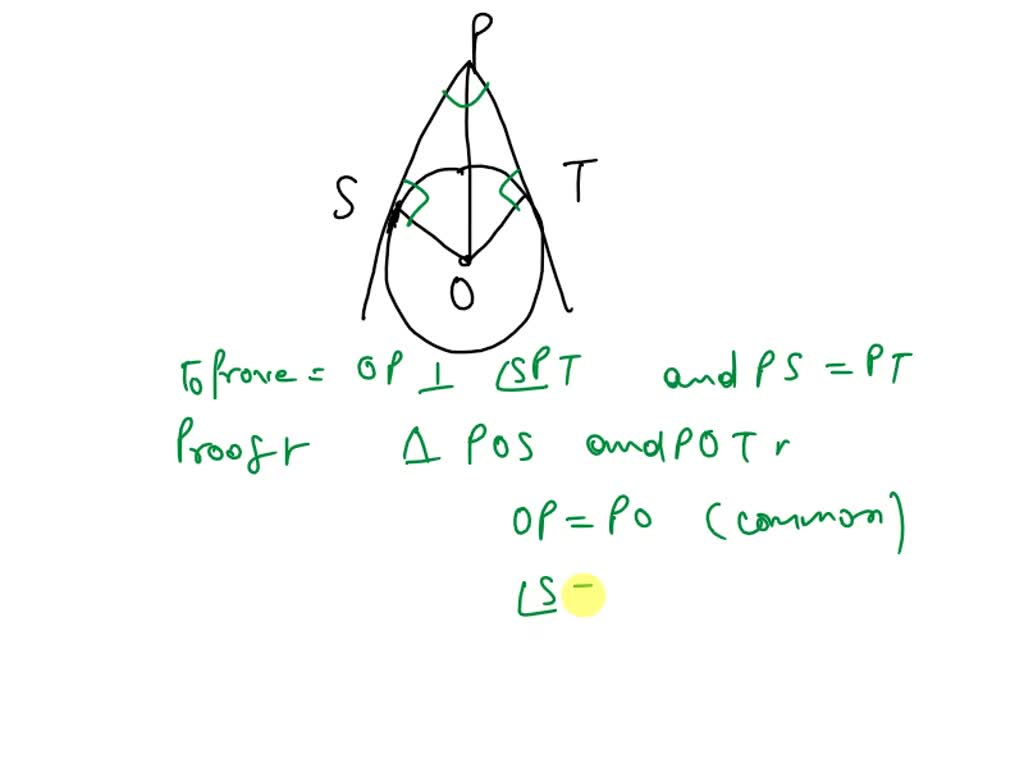 P
S T
O
To Prove = OP ⊥ ∠SPT and PS = PT
Proof r Δ POS and POT r
OP = PO (common)
∠S =